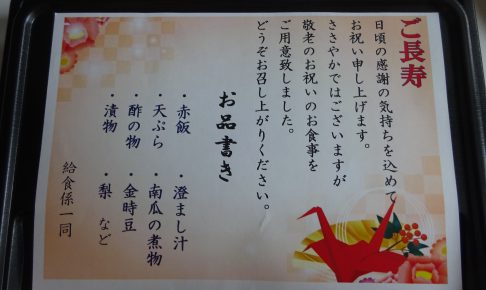 ご長寿
日頃の感謝の気持ちを込めて
お祝い申し上げます。
ささやかではございますが
敬老のお祝いのお食事を
ご用意致しました。
どうぞお召し上がりください。
お品書き
・赤飯 ・澄まし汁
・天ぷら ・南瓜の煮物
・酢の物 ・金時豆
・漬物 ・梨 など
給食係一同